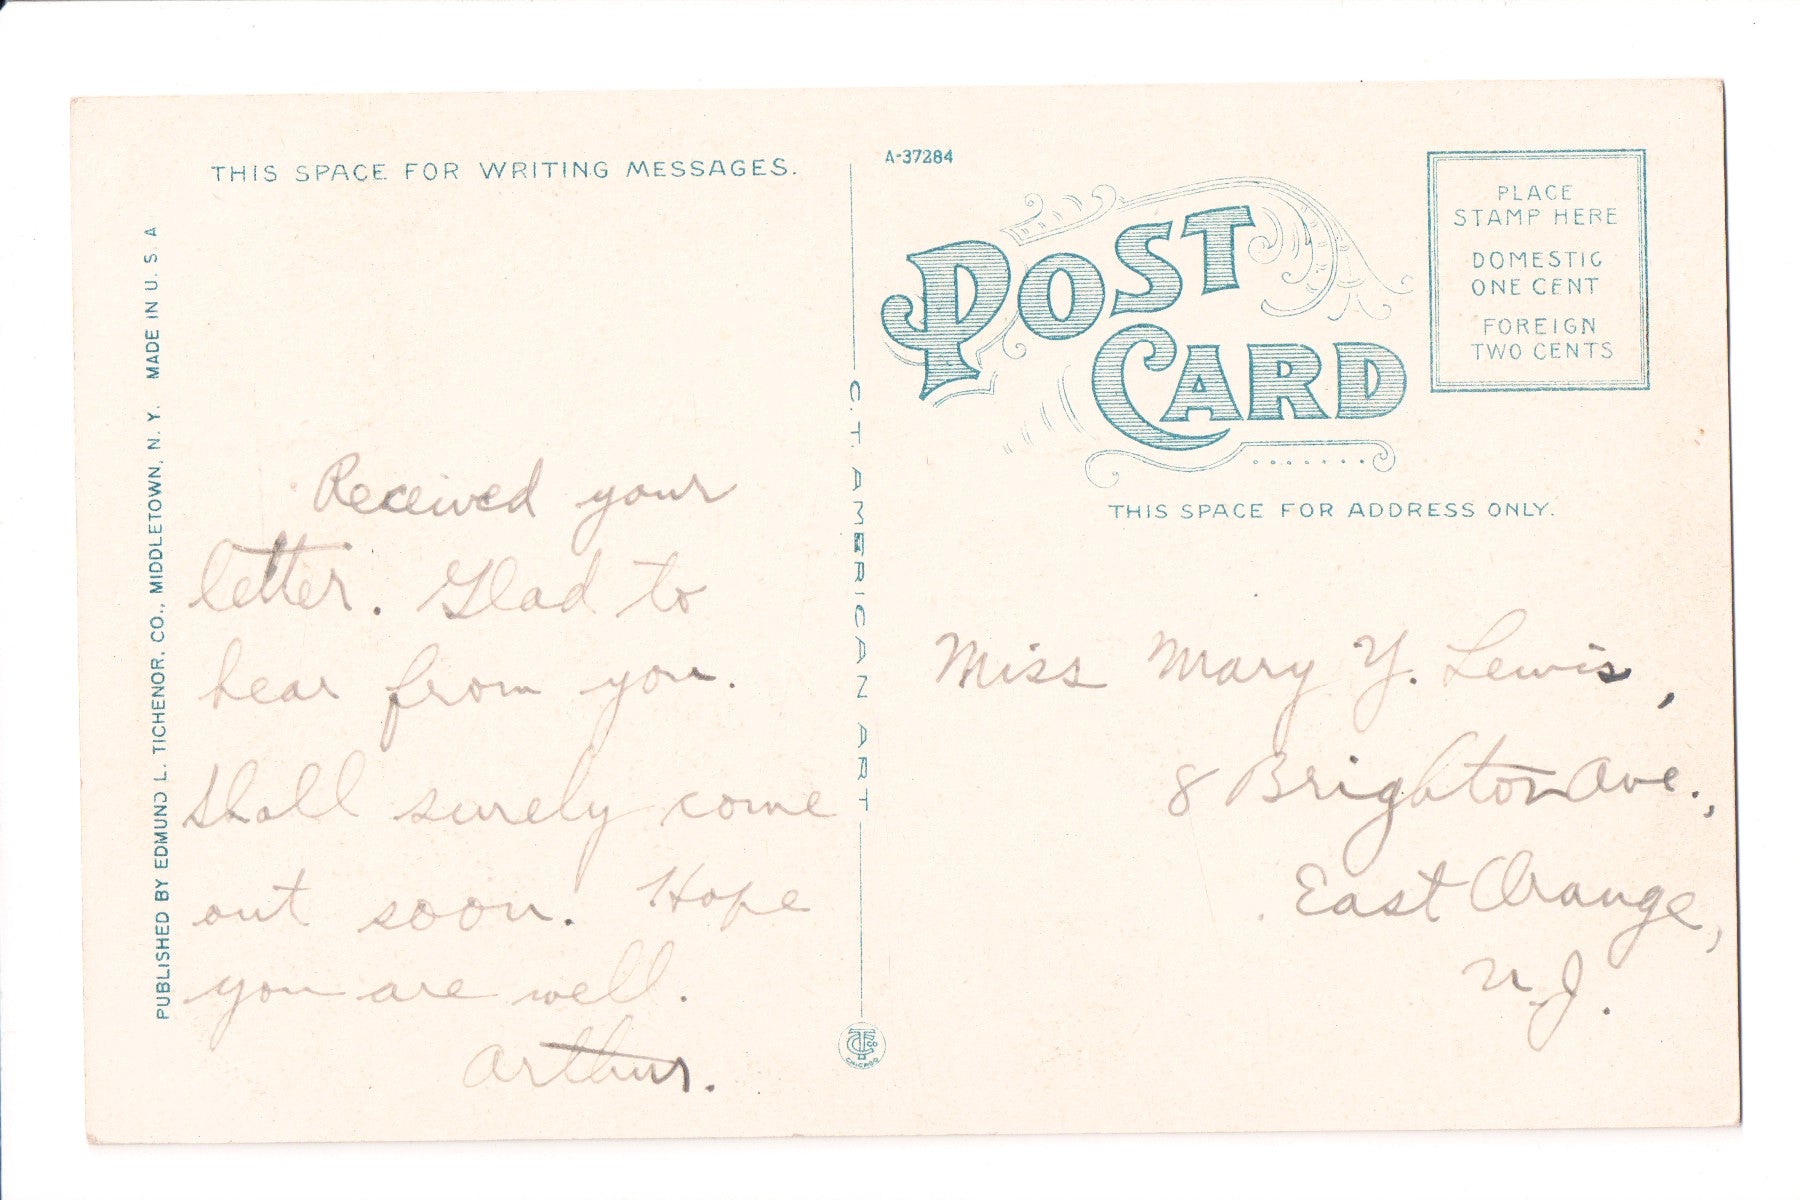 THIS SPACE FOR WRITING MESSAGES.
Received your
letter. Glad to
hear from you.
Shall surely come
out soon. Hope
you are well.
Arthur.
PUBLISHED BY EDMUND L. TICHENOR. CO., MIDDLETOWN, N. Y. MADE IN U. S. A
C. T. AMERICAN ART
CHICAGO
A-37284
POST
CARD
PLACE
STAMP HERE
DOMESTIC
ONE CENT
FOREIGN
TWO CENTS
THIS SPACE FOR ADDRESS ONLY.
Miss Mary Y. Lewis,
8 Brighton Ave.,
East Orange,
N.J.